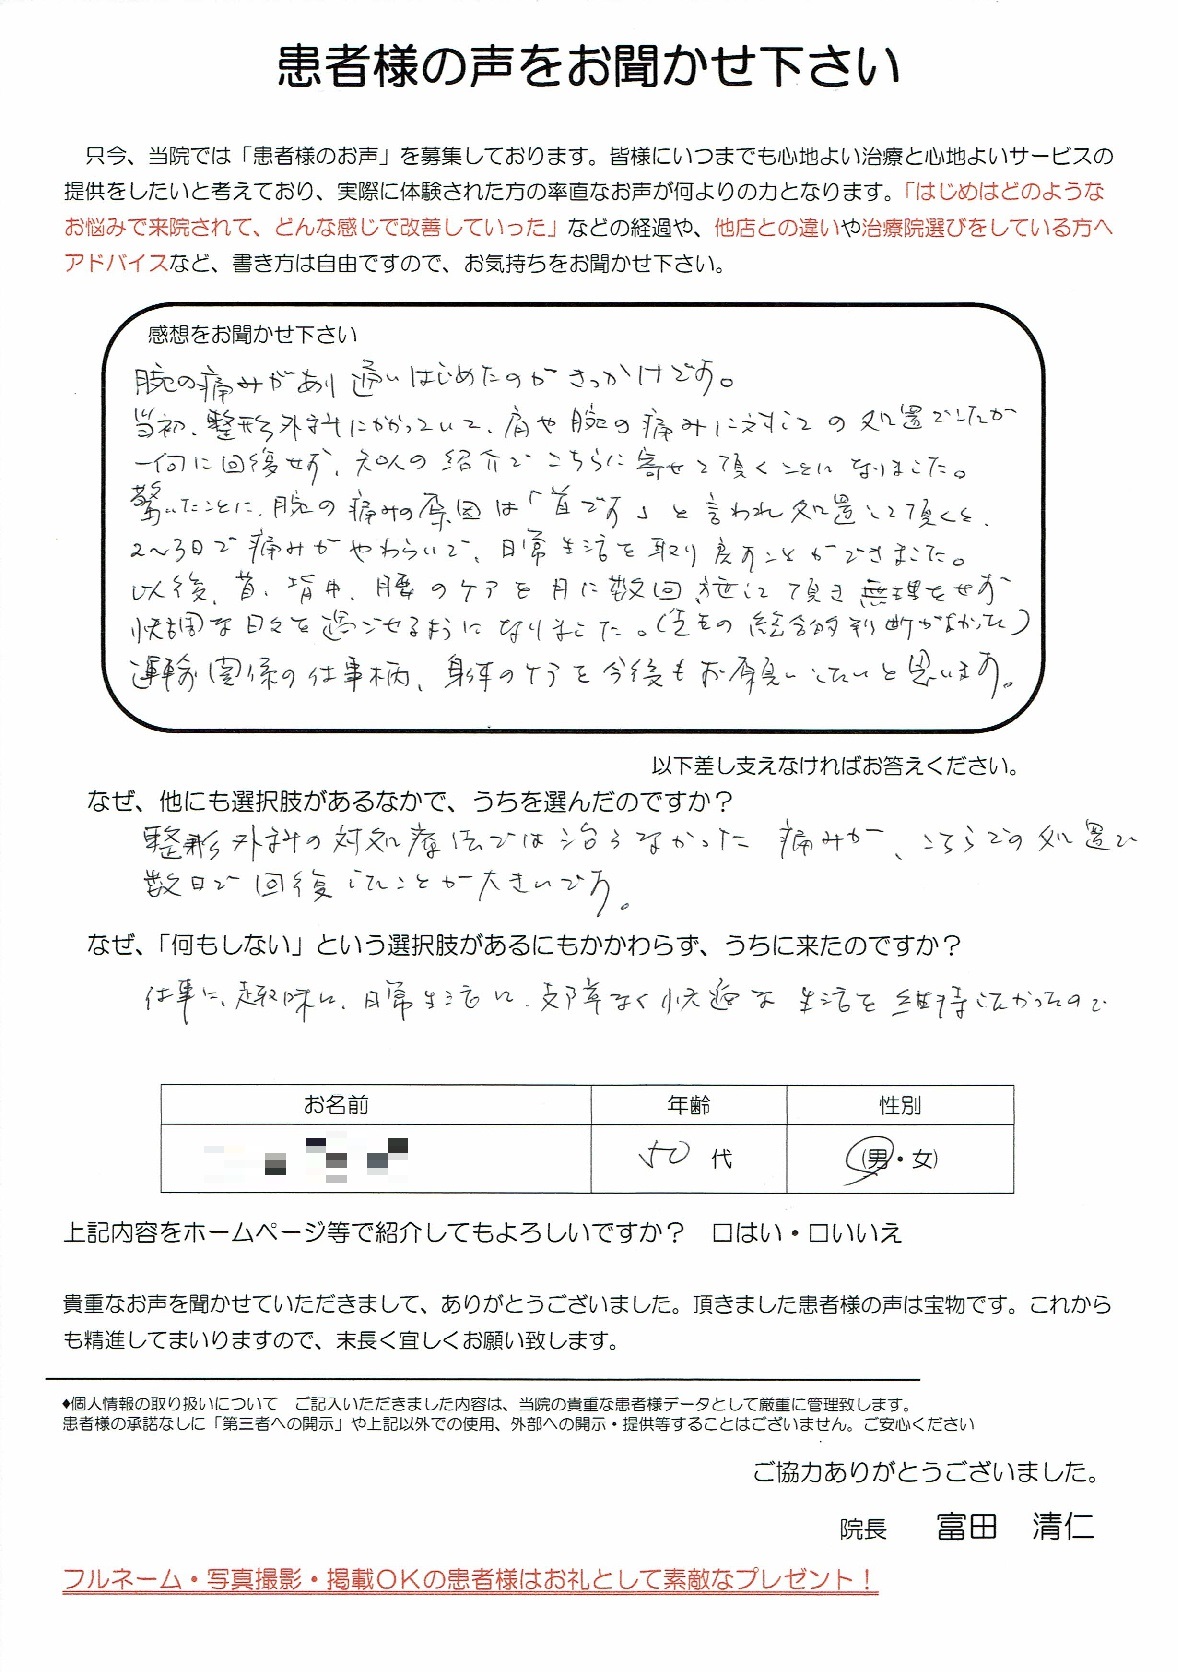 患者様の声をお聞かせ下さい
只今、当院では「患者様のお声」を募集しております。皆様にいつまでも心地よい治療と心地よいサービスの
提供をしたいと考えており、実際に体験された方の率直なお声が何よりの力となります。「はじめはどのような
お悩みで来院されて、どんな感じで改善していった」などの経過や、他店との違いや治療院選びをしている方へ
アドバイスなど、書き方は自由ですので、お気持ちをお聞かせ下さい。
感想をお聞かせ下さい
腕の痛みがあり通いはじめたのがきっかけです。
当初、整形外科にかかっていて、肩や腕の痛みに対しての処置でしたが
一向に回復せず、知人の紹介でこちらに寄せて頂くことになりました。
驚いたことに、腕の痛みの原因は「首です」と言われ処置して頂くと、
2～3日で痛みがやわらいで、日常生活を取り戻すことができました。
以後、首、背中、腰のケアを月に数回施して頂き無理をせず
快調な日々を過ごせるようになりました。(  の総合的判断がなかった)
運輸関係の仕事柄、身体のケアを今後もお願いしたいと思います。
以下差し支えなければお答えください。
なぜ、他にも選択肢があるなかで、うちを選んだのですか？
整形外科の対処療法では治らなかった痛みが、こちらでの処置で
数日で回復したことが大きいです。
なぜ、「何もしない」という選択肢があるにもかかわらず、うちに来たのですか？
仕事に、趣味に、日常生活に、支障なく快適な生活を維持したかったので
お名前 年齢 性別
50 代 (男・女)
上記内容をホームページ等で紹介してもよろしいですか？ □はい・□いいえ
貴重なお声を聞かせていただきまして、ありがとうございました。頂きました患者様の声は宝物です。これから
も精進してまいりますので、末長く宜しくお願い致します。
♦個人情報の取り扱いについて ご記入いただきました内容は、当院の貴重な患者様データとして厳重に管理致します。
患者様の承諾なしに「第三者への開示」や上記以外での使用、外部への開示・提供等することはございません。ご安心ください
ご協力ありがとうございました。
院長 富田 清仁
フルネーム・写真撮影・掲載OKの患者様はお礼として素敵なプレゼント！